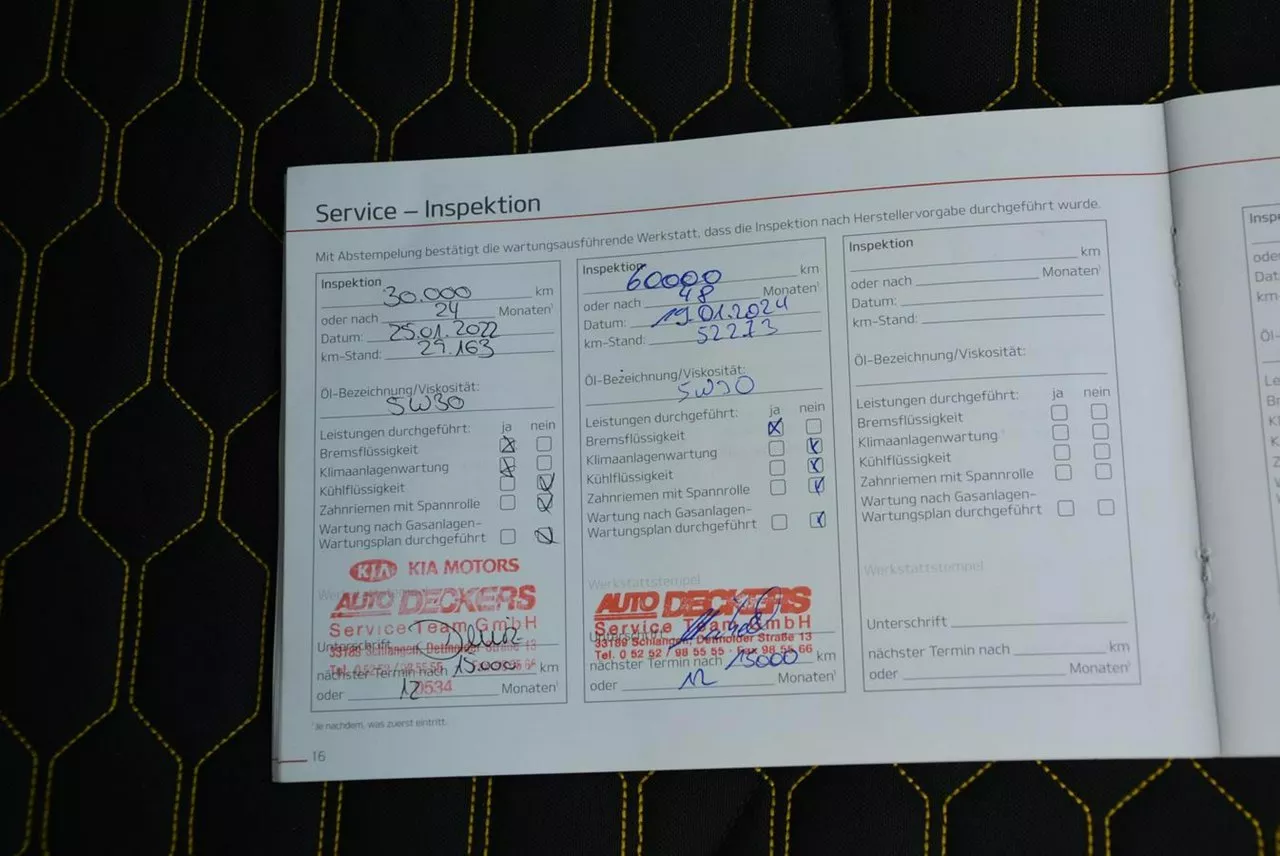 Service – Inspektion
Mit Abstempelung bestätigt die wartungsausführende Werkstatt, dass die Inspektion nach Herstellervorgabe durchgeführt wurde.
Inspektion
30.000 km
oder nach 24 Monaten¹
Datum: 25.01.2022
km-Stand: 29.163
Öl-Bezeichnung/Viskosität:
5W30
Leistungen durchgeführt: ja nein
Bremsflüssigkeit
Klimaanlagenwartung
Kühlflüssigkeit
Zahnriemen mit Spannrolle
Wartung nach Gasanlagen-
Wartungsplan durchgeführt
KIA KIA MOTORS
AUTO DECKERS
Service Team GmbH
Unterschrift
33189 Schlangen, Detmolder Straße 13
nächster Termin nach 15.000 km
oder 12 Monaten¹
0534
Inspektion
60000 km
oder nach 48 Monaten¹
Datum: 19.01.2024
km-Stand: 52273
Öl-Bezeichnung/Viskosität:
5W30
Leistungen durchgeführt: ja nein
Bremsflüssigkeit
Klimaanlagenwartung
Kühlflüssigkeit
Zahnriemen mit Spannrolle
Wartung nach Gasanlagen-
Wartungsplan durchgeführt
Werkstattstempel
AUTO DECKERS
Service Team GmbH
Unterschrift
33189 Schlangen, Detmolder Straße 13
Tel. 0 52 52 / 98 55 55 - Fax 98 55 66
nächster Termin nach 15000 km
oder 12 Monaten¹
Inspektion
km
oder nach Monaten¹
Datum:
km-Stand:
Öl-Bezeichnung/Viskosität:
Leistungen durchgeführt: ja nein
Bremsflüssigkeit
Klimaanlagenwartung
Kühlflüssigkeit
Zahnriemen mit Spannrolle
Wartung nach Gasanlagen-
Wartungsplan durchgeführt
Werkstattstempel
Unterschrift
nächster Termin nach km
oder Monaten¹
¹Je nachdem, was zuerst eintritt.
16